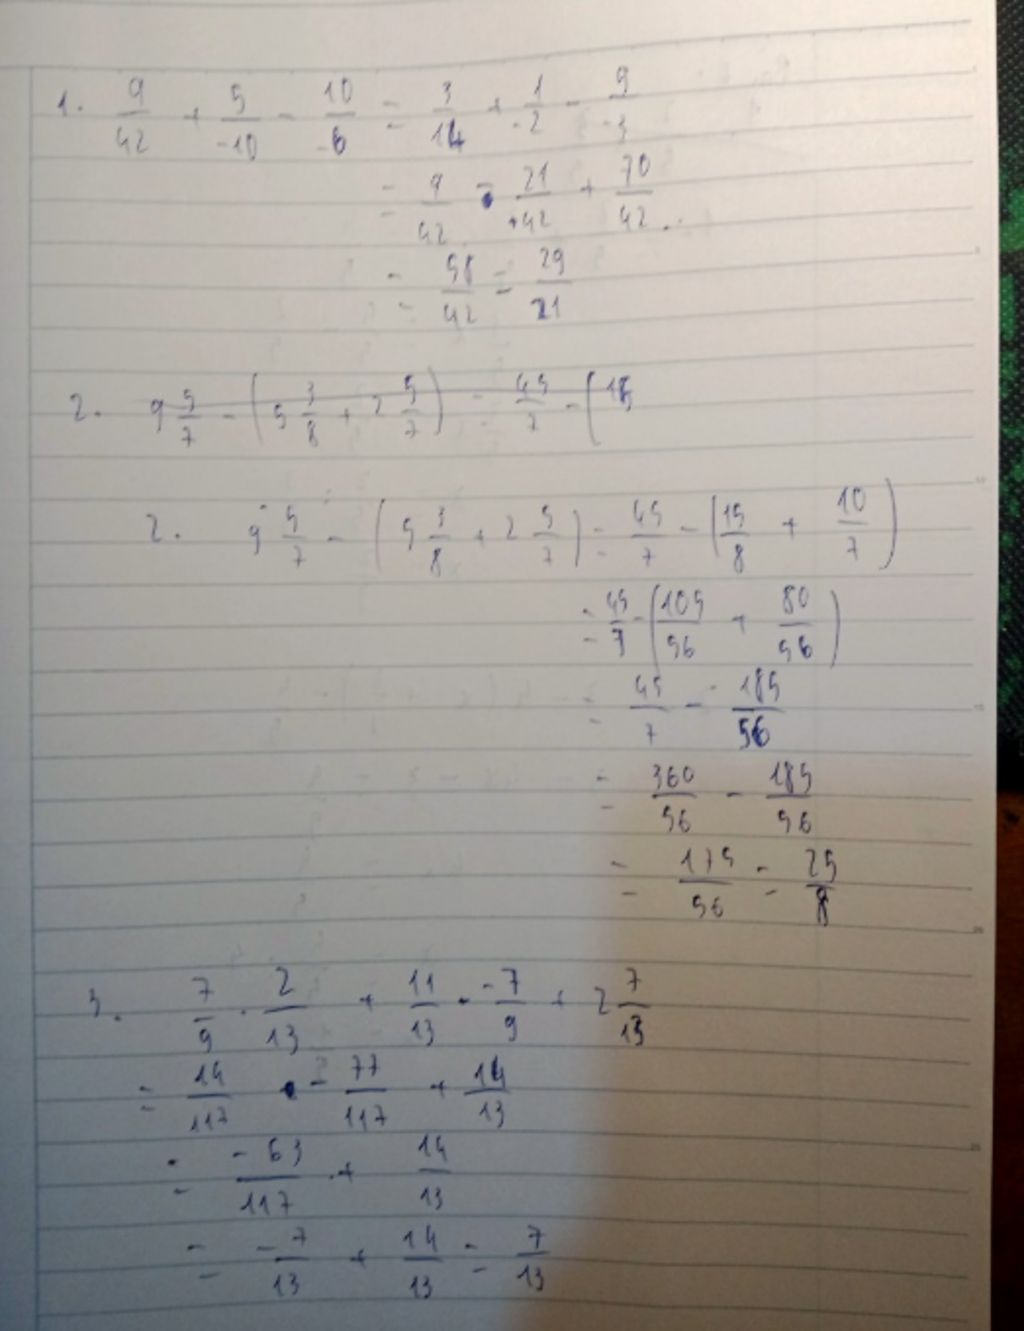 1. 9/42 + 5/-10 - 10/-6 = 3/14 + 1/-2 - 5/-3
= 9/42 - 21/42 + 70/42
= 58/42 = 29/21
2. 9 5/7 - (5 3/8 + 2 5/7) = 45/7 - (15
2. 9 5/7 - (5 3/8 + 2 5/7) = 45/7 - (15/8 + 10/7)
= 45/7 - (105/56 + 80/56)
= 45/7 - 185/56
= 360/56 - 185/56
= 175/56 = 25/8
3. 7/9 . 2/13 + 11/13 . -7/9 + 2 7/13
= 14/117 - 77/117 + 14/13
= -63/117 + 14/13
= -7/13 + 14/13 = 7/13